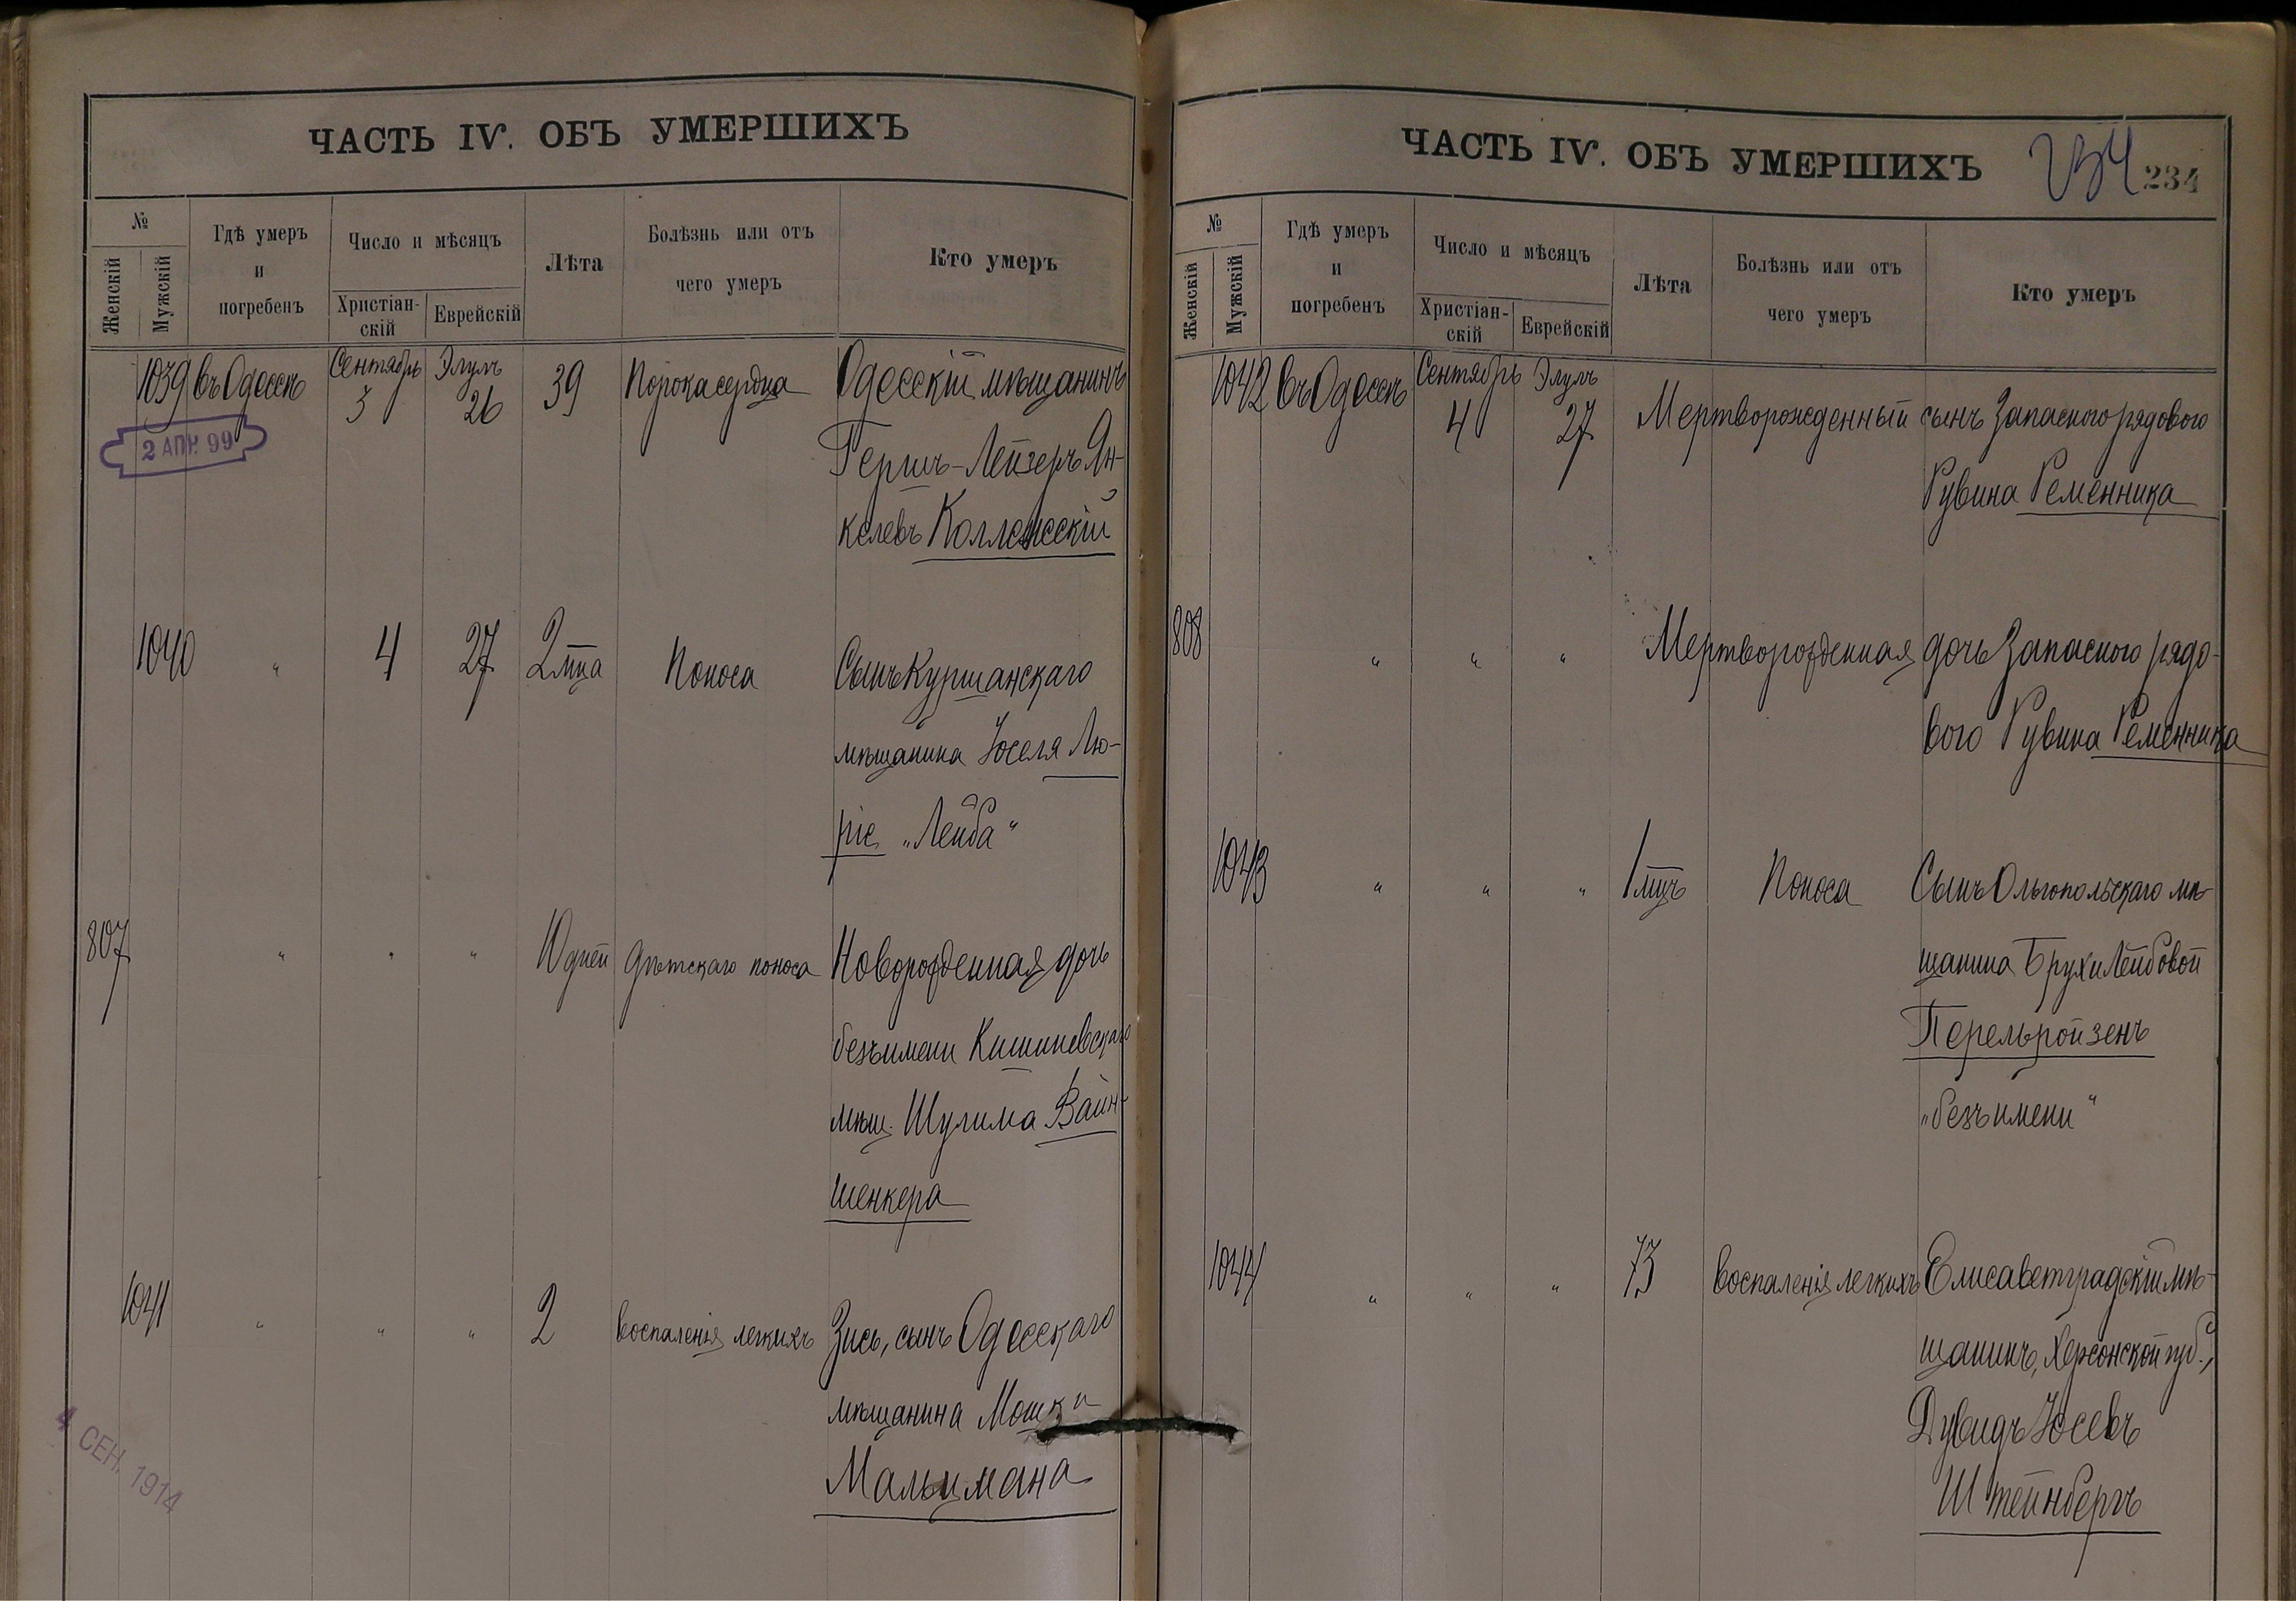 ЧАСТЬ IV. ОБЪ УМЕРШИХЪ
№
Женскій
Мужскій
Гдѣ умеръ
и
погребенъ
Число и мѣсяцъ
Христіан-
скій
Еврейскій
Лѣта
Болѣзнь или отъ
чего умеръ
Кто умеръ
1039 въ Одессѣ Сентябрь 3 Элулъ 26 39 Порока сердца Одесскій мѣщанинъ
Гершъ-Лейзеръ Ян-
келевъ
2 АПР. 99
1040 " 4 27 2 мца Поноса Сынъ
мѣщанина Іоселя Лю-
ріе "Лейба"
807 " " " 10 дней Дѣтскаго поноса Новорожденная дочь
безъ имени Кишиневскаго
мѣщ. Шулима Вайн-
шенкера
1041 " " " 2 Воспаленія легкихъ Зись, сынъ Одесскаго
мѣщанина Мошки
Мальцмана
4 СЕН. 1914
ЧАСТЬ IV. ОБЪ УМЕРШИХЪ
234 234
№
Женскій
Мужскій
Гдѣ умеръ
и
погребенъ
Число и мѣсяцъ
Христіан-
скій
Еврейскій
Лѣта
Болѣзнь или отъ
чего умеръ
Кто умеръ
1042 въ Одессѣ Сентябрь 4 Элулъ 27 Мертворожденный сынъ Запасного рядового
Рувина Ременника
808 " " " Мертворожденная дочь Запасного рядо-
вого Рувина Ременника
1043 " " " 1 мцъ Поноса Сынъ Ольгопольскаго мѣ-
щанина Брухи Лейбовой
Перельройзенъ
"безъ имени"
1044 " " " 73 Воспаленія легкихъ Елисаветградскій мѣ-
щанинъ, Херсонской губ.,
Дувидъ Іосевъ
Штейнбергъ